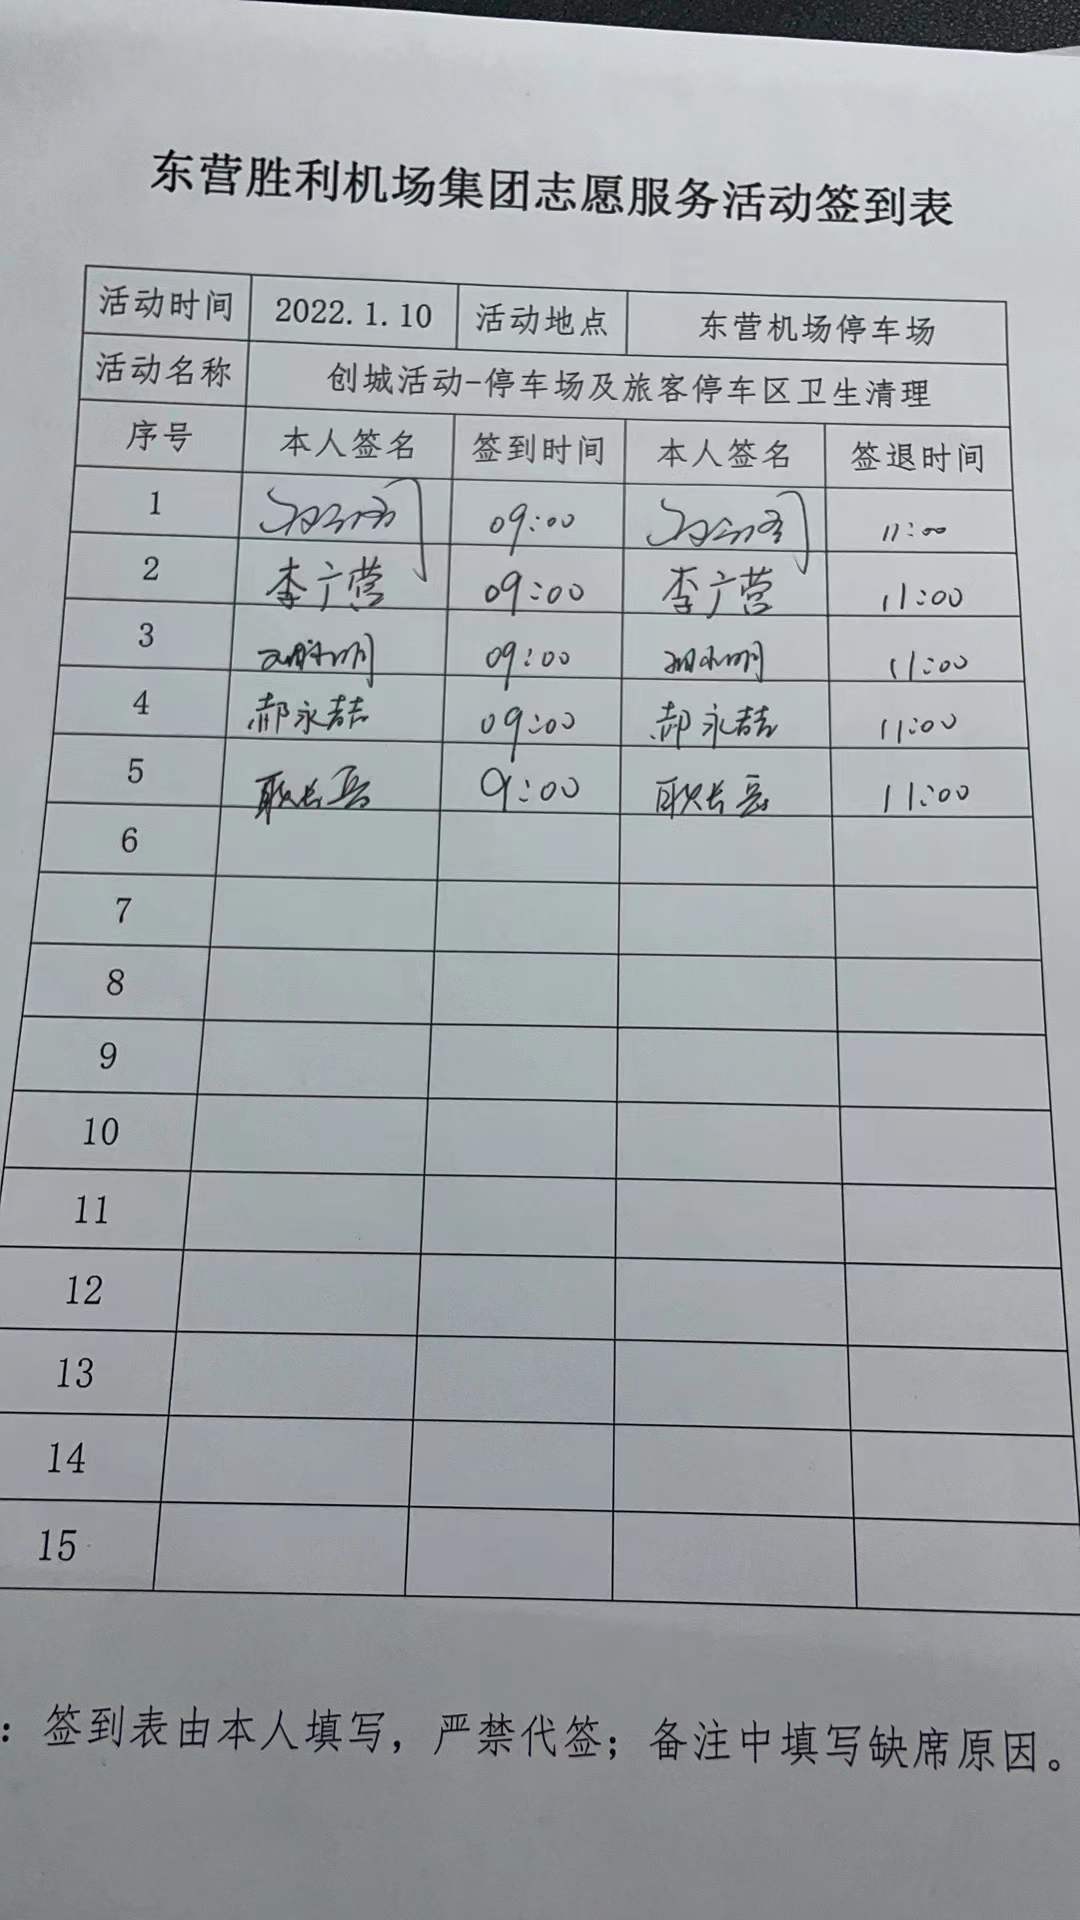 东营胜利机场集团志愿服务活动签到表
活动时间 2022.1.10 活动地点 东营机场停车场
活动名称 创城活动-停车场及旅客停车区卫生清理
序号 本人签名 签到时间 本人签名 签退时间
1 09:00 11:00
2 李广营 09:00 李广营 11:00
3 09:00 11:00
4 郝永喆 09:00 郝永喆 11:00
5 9:00 11:00
6
7
8
9
10
11
12
13
14
15
：签到表由本人填写，严禁代签；备注中填写缺席原因。